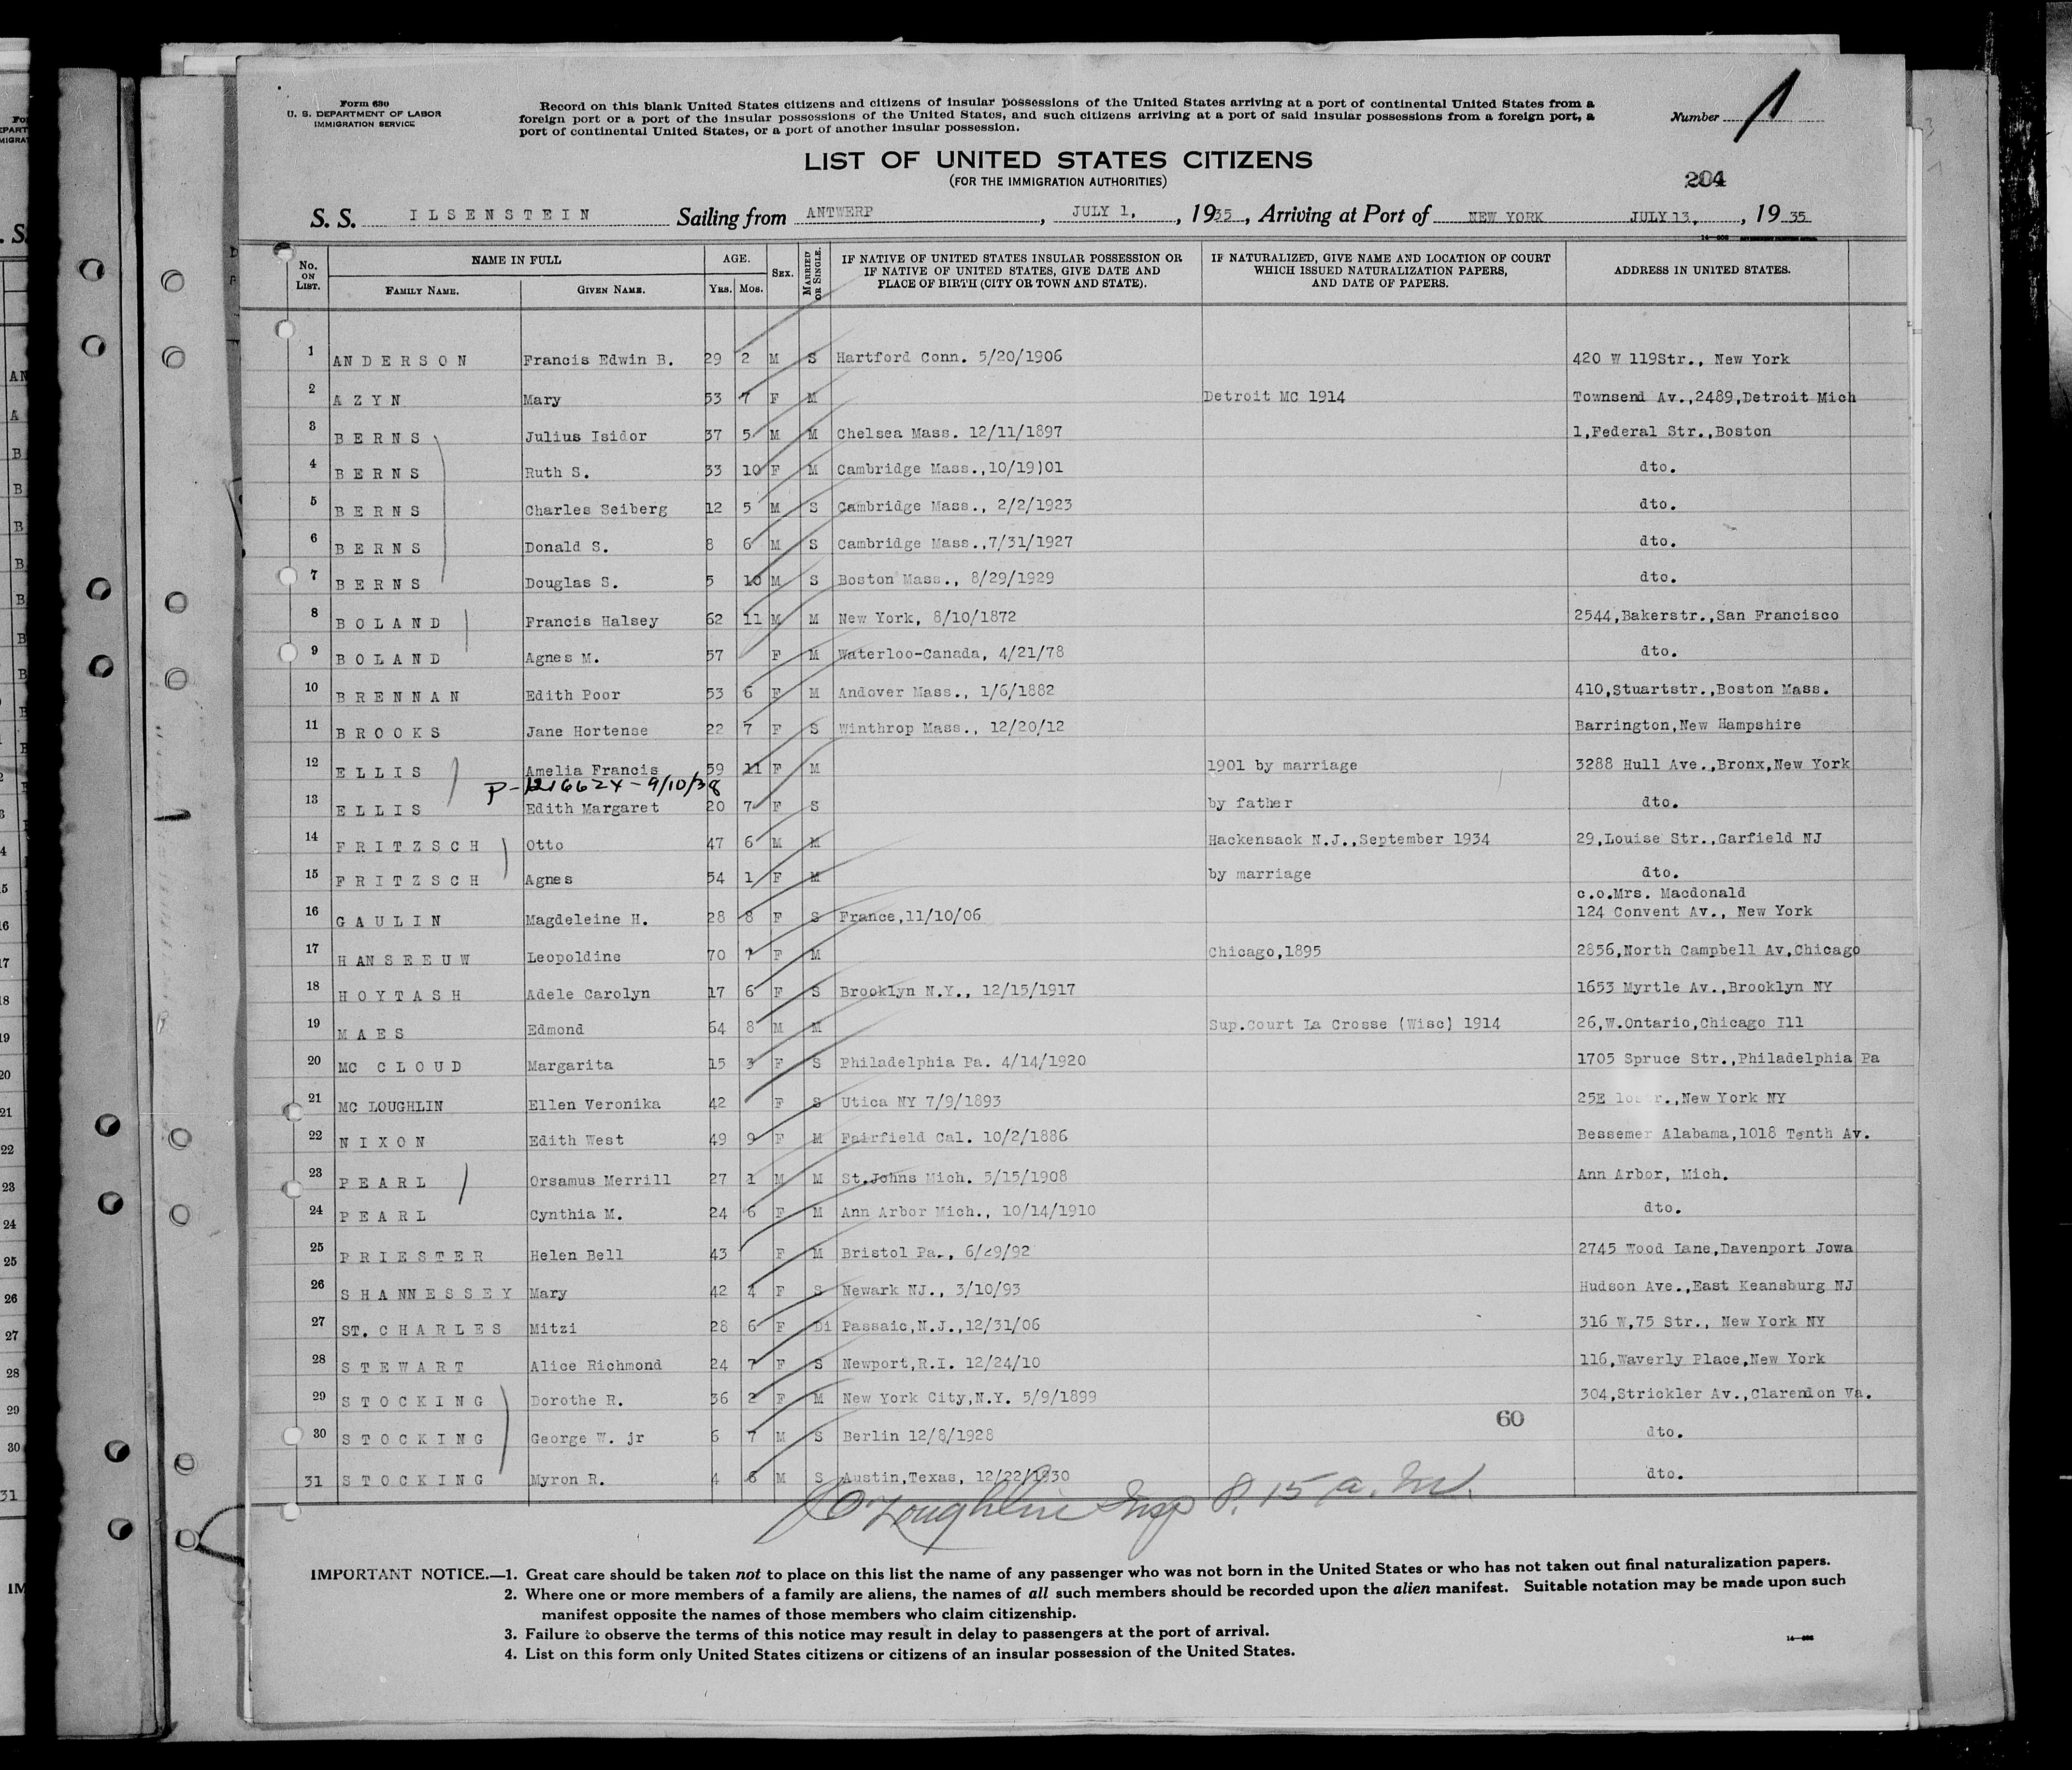 Form 630
U. S. DEPARTMENT OF LABOR
IMMIGRATION SERVICE
Record on this blank United States citizens and citizens of insular possessions of the United States arriving at a port of continental United States from a
foreign port or a port of the insular possessions of the United States, and such citizens arriving at a port of said insular possessions from a foreign port, a
port of continental United States, or a port of another insular possession.
Number 1
LIST OF UNITED STATES CITIZENS
(FOR THE IMMIGRATION AUTHORITIES)
204
S. S. ILSENSTEIN Sailing from ANTWERP, JULY 1, , 1935, Arriving at Port of NEW YORK JULY 13, , 1935
No. ON LIST. NAME IN FULL FAMILY NAME. GIVEN NAME. AGE. YRS. MOS. SEX. MARRIED OR SINGLE. IF NATIVE OF UNITED STATES INSULAR POSSESSION OR IF NATIVE OF UNITED STATES, GIVE DATE AND PLACE OF BIRTH (CITY OR TOWN AND STATE). IF NATURALIZED, GIVE NAME AND LOCATION OF COURT WHICH ISSUED NATURALIZATION PAPERS, AND DATE OF PAPERS. ADDRESS IN UNITED STATES.
1 ANDERSON Francis Edwin B. 29 2 M S Hartford Conn. 5/20/1906 420 W 119Str., New York
2 AZYN Mary 53 7 F M Detroit MC 1914 Townsend Av.,2489,Detroit Mich
3 BERNS Julius Isidor 37 5 M M Chelsea Mass. 12/11/1897 1,Federal Str.,Boston
4 BERNS Ruth S. 33 10 F M Cambridge Mass.,10/19)01 dto.
5 BERNS Charles Seiberg 12 5 M S Cambridge Mass., 2/2/1923 dto.
6 BERNS Donald S. 8 6 M S Cambridge Mass.,7/31/1927 dto.
7 BERNS Douglas S. 5 10 M S Boston Mass., 8/29/1929 dto.
8 BOLAND Francis Halsey 62 11 M M New York, 8/10/1872 2544,Bakerstr.,San Francisco
9 BOLAND Agnes M. 57 F M Waterloo-Canada, 4/21/78 dto.
10 BRENNAN Edith Poor 53 6 F M Andover Mass., 1/6/1882 410,Stuartstr.,Boston Mass.
11 BROOKS Jane Hortense 22 7 F S Winthrop Mass., 12/20/12 Barrington,New Hampshire
12 ELLIS Amelia Francis 59 11 F M 1901 by marriage 3288 Hull Ave.,Bronx,New York
P-1216624-9/10/38
13 ELLIS Edith Margaret 20 7 F S by father dto.
14 FRITZSCH Otto 47 6 M M Hackensack N.J.,September 1934 29,Louise Str.,Garfield NJ
15 FRITZSCH Agnes 54 1 F M by marriage dto.
c.o.Mrs. Macdonald
16 GAULIN Magdeleine H. 28 8 F S France,11/10/06 124 Convent Av., New York
17 HANSEEUW Leopoldine 70 7 F M Chicago,1895 2856,North Campbell Av,Chicago
18 HOYTASH Adele Carolyn 17 6 F S Brooklyn N.Y., 12/15/1917 1653 Myrtle Av.,Brooklyn NY
19 MAES Edmond 64 8 M M Sup.Court La Crosse (Wisc) 1914 26,W.Ontario,Chicago Ill
20 MC CLOUD Margarita 15 3 F S Philadelphia Pa. 4/14/1920 1705 Spruce Str.,Philadelphia Pa
21 MC LOUGHLIN Ellen Veronika 42 F S Utica NY 7/9/1893 25E New York NY
22 NIXON Edith West 49 9 F M Fairfield Cal. 10/2/1886 Bessemer Alabama,1018 Tenth Av.
23 PEARL Orsamus Merrill 27 1 M M St.Johns Mich. 5/15/1908 Ann Arbor, Mich.
24 PEARL Cynthia M. 24 6 F M Ann Arbor Mich., 10/14/1910 dto.
25 PRIESTER Helen Bell 43 F M Bristol Pa., 6/29/92 2745 Wood Lane,Davenport Jowa
26 SHANNESSEY Mary 42 4 F S Newark NJ., 3/10/93 Hudson Ave.,East Keansburg NJ
27 ST. CHARLES Mitzi 28 6 F Di Passaic,N.J.,12/31/06 316 W,75 Str., New York NY
28 STEWART Alice Richmond 24 7 F S Newport,R.I. 12/24/10 116,Waverly Place,New York
29 STOCKING Dorothe R. 36 2 F M New York City,N.Y. 5/9/1899 304,Strickler Av.,Clarendon Va.
60
30 STOCKING George W. jr 6 7 M S Berlin 12/8/1928 dto.
31 STOCKING Myron R. 4 6 M S Austin,Texas, 12/22/1930 dto.
O'Loughlin Insp 8.15 a.m.
IMPORTANT NOTICE.—1. Great care should be taken not to place on this list the name of any passenger who was not born in the United States or who has not taken out final naturalization papers.
2. Where one or more members of a family are aliens, the names of all such members should be recorded upon the alien manifest. Suitable notation may be made upon such
manifest opposite the names of those members who claim citizenship.
3. Failure to observe the terms of this notice may result in delay to passengers at the port of arrival.
4. List on this form only United States citizens or citizens of an insular possession of the United States.